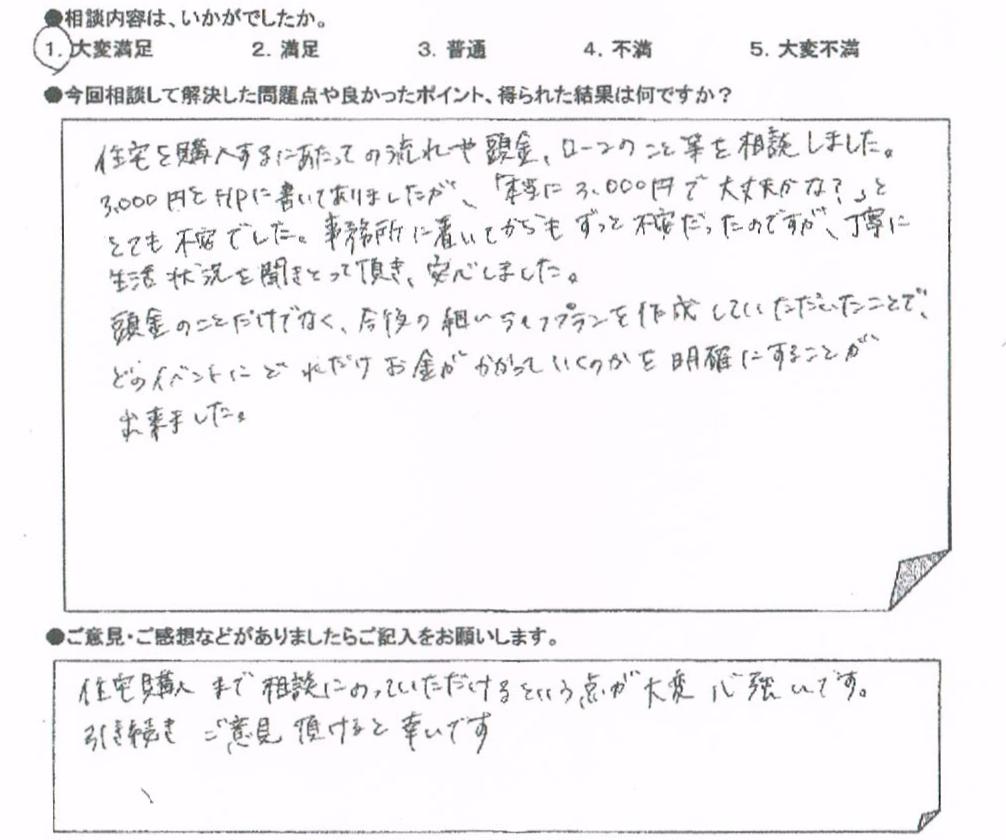 ●相談内容は、いかがでしたか。
1. 大変満足 2. 満足 3. 普通 4. 不満 5. 大変不満
●今回相談して解決した問題点や良かったポイント、得られた結果は何ですか？
住宅を購入するにあたっての流れや頭金、ローンのこと等を相談しました。
3,000円とHPに書いてありましたが、「本当に3,000円で大丈夫かな？」と
とても不安でした。事務所に着いてからもずっと不安だったのですが、丁寧に
生活状況を聞きとって頂き、安心しました。
頭金のことだけでなく、今後の細いライフプランを作成していただいたことで、
どのイベントにどれだけお金がかかっていくのかを明確にすることが
出来ました。
●ご意見・ご感想などがありましたらご記入をお願いします。
住宅購入まで相談にのっていただけるという点が大変心強いです。
引き続きご意見頂けると幸いです